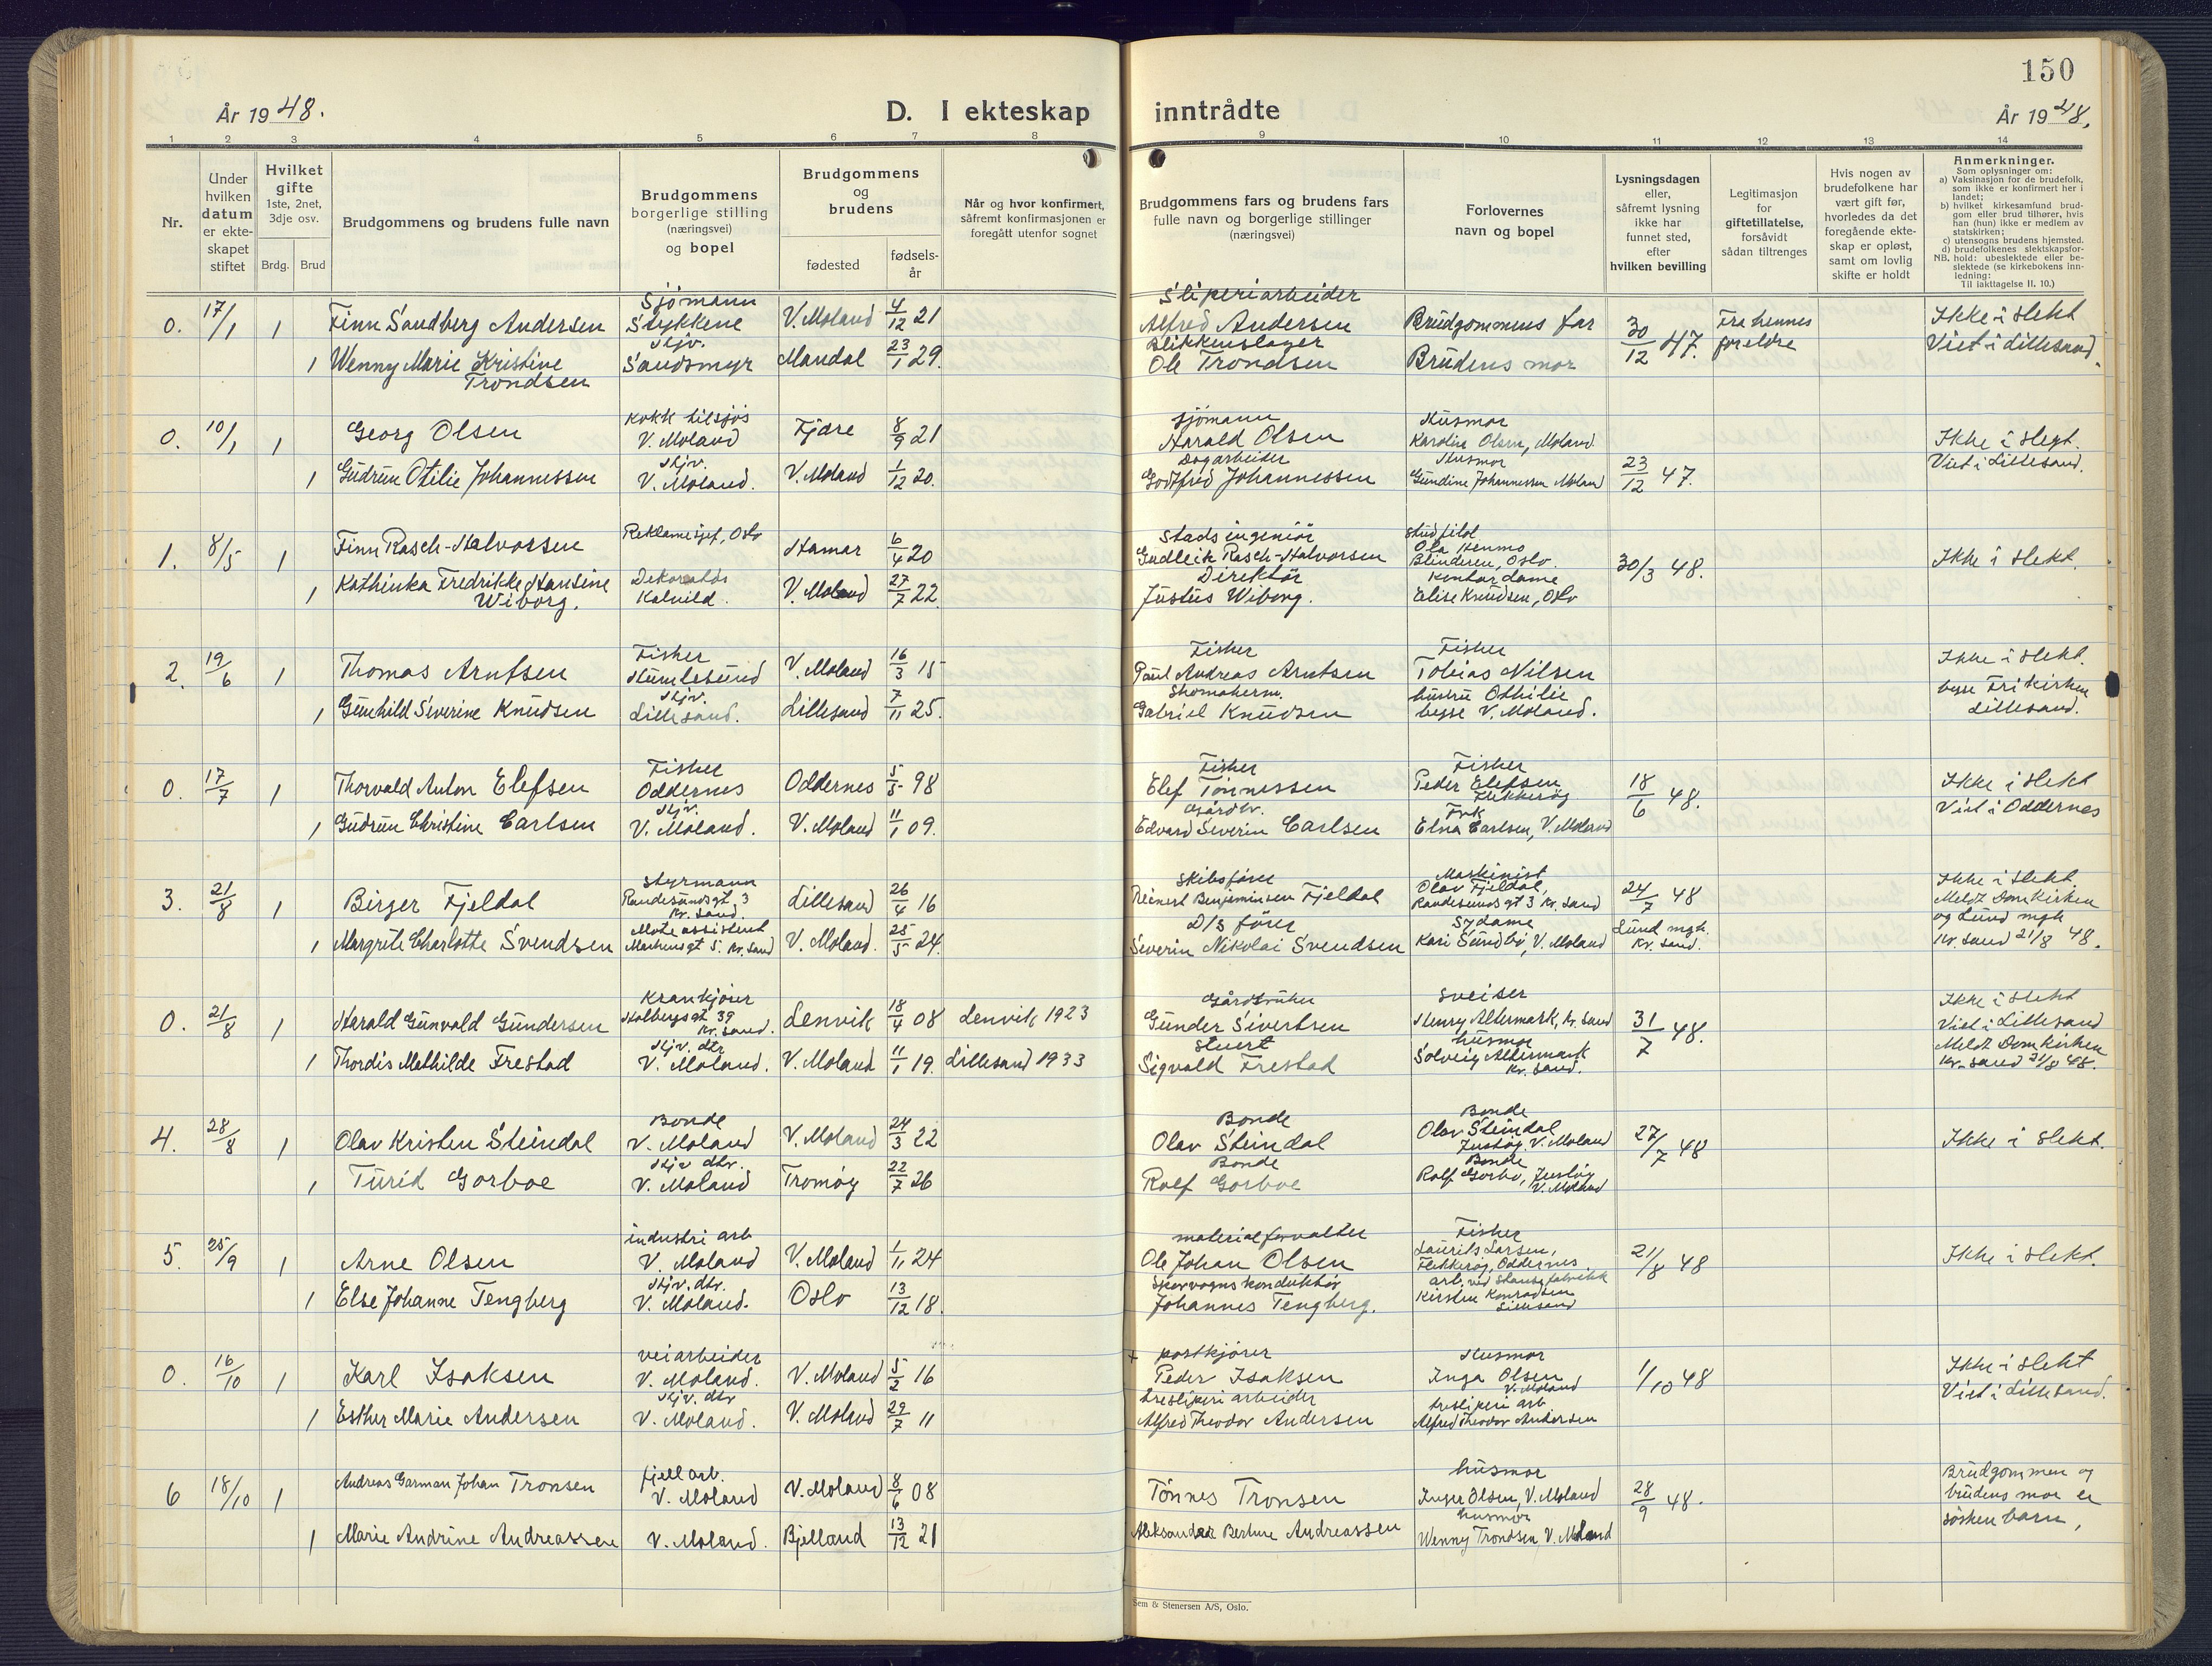 150
År 1948.
D. I ekteskap inntrådte
År 1948.
1 2 3 4 5 6 7 8 9 10 11 12 13 14
Nr.
Under hvilken datum er ekte-skapet stiftet
Hvilket gifte 1ste, 2net, 3dje osv.
Brdg. Brud
Brudgommens og brudens fulle navn
Brudgommens borgerlige stilling (næringsvei) og bopel
Brudgommens og brudens
fødested
fødsels-år
Når og hvor konfirmert, såfremt konfirmasjonen er foregått utenfor sognet
Brudgommens fars og brudens fars fulle navn og borgerlige stillinger (næringsvei)
Forlovernes navn og bopel
Lysningsdagen eller, såfremt lysning ikke har funnet sted, efter hvilken bevilling
Legitimasjon for giftetillatelse, forsåvidt sådan tiltrenges
Hvis nogen av brudefolkene har vært gift før, hvorledes da det foregående ekte-skap er opløst, samt om lovlig skifte er holdt
Anmerkninger.
Som oplysninger om:
a) Vaksinasjon for de brudefolk, som ikke er konfirmert her i landet;
b) hvilket kirkesamfund brud-gom eller brud tilhører, hvis han (hun) ikke er medlem av statskirken;
c) utensogns brudens hjemsted.
d) brudefolkenes slektskapsfor-
NB. hold: ubeslektede eller be-slektede (se kirkebokens inn-ledning:
Til iakttagelse II. 10.)
Sjømann Sliperiarbeider
0. 17/1 1 Finn Sandberg Andersen Stykkene V. Moland 4/12 21 Alfred Andersen Brudgommens far 30/12 47. Fra hennes foreldre Ikke i slekt
Hjv. Blikkenslager
1 Wenny Marie Kristine Trondsen Sandsmyr Mandal 23/1 29. Ole Trondsen Brudens mor Viet i Lillesand.
Kokk tilsjøs Sjømann Husmor
0. 10/1 1 Georg Olsen V. Moland Fjære 8/9 21 Harald Olsen Karoline Olsen, Moland. Ikke i slegt.
Hjv. Dagarbeider Husmor
1 Gudrun Otilie Johannessen V. Moland. V. Moland 1/12 20. Godtfred Johannessen Gundine Johannessen Moland 23/12 47. Viet i Lillesand.
Reklamesjef, Oslo Stadsingeniør Stud filol
1. 8/5 1 Finn Rasch-Halvorsen Hamar 6/4 20 Gudleik Rasch-Halvorsen Ola Henmo Blinderen, Oslo. 30/3 48. Ikke i slekt.
Dekoratør Direktør Kontordame
1 Kathinka Fredrikke Hansine Wiborg. Kalvild. V. Moland 27/7 22. Justus Wiborg. Elise Knudsen, Oslo
Fisker Fisker Fisker
2. 19/6 1 Thomas Arntsen Humlesund V. Moland 16/3 15 Paul Andreas Arntsen Tobias Nilsen Ikke i slekt.
Hjv. Skomakerm. hustru Othilie
1 Gunhild Severine Knudsen Lillesand. Lillesand 7/11 25. Gabriel Knudsen begge V. Moland. Frikirken Lillesand.
Fisker Fisker Fisker
0. 17/7 1 Thorvald Anton Elefsen Oddernes Oddernes 5/5 98 Elef Tønnessen Peder Elefsen Flekkerøy 18/6 48. Ikke i slekt
Hjv. Gårdbr. Frk
1 Gudrun Christine Carlsen V. Moland. V. Moland 11/1 09. Edvard Severin Carlsen Elna Carlsen, V. Moland Viet i Oddernes
Styrmann Skibsfører Maskinist
3. 21/8 1 Birger Fjeldal Randesundsgt. 3 Kr. Sand. Lillesand 26/4 16 Reinert Benjaminsen Fjeldal Olav Fjeldal, Randesunds gt 3 Kr. Sand 24/7 48 Ikke i slekt.
Mote assistent D/s fører Sydame Lund mgh. Kr. Sand. Meldt Domkirken og Lund mgh
1 Margrete Charlotte Svendsen Markensgt 5. Kr. Sand V. Moland. 25/5 24. Severin Nikolai Svendsen Kari Sundbø, V. Moland Kr. Sand 21/8 48.
Krankjører Gårdbruker Sveiser
0. 21/8 1 Harald Gunvald Gundersen Holbergsgt 39 Kr. Sand. Lenvik 18/4 08 Lenvik 1923 Gunder Sivertsen Henry Altermark, Kr. Sand 31/7 48. Ikke i slekt Viet i Lillesand
Hjv. dtr Stuert husmor
1 Thordis Mathilde Frestad V. Moland. V. Moland 11/1 19. Lillesand 1933 Sigvald Frestad Solveig Altermark Kr. Sand. Meldt Domkirken Kr. Sand 21/8 48.
Bonde Bonde Bonde
4. 28/8 1 Olav Kristen Steindal V. Moland V. Moland 24/3 22 Olav Steindal Olav Steindal Justøy, V. Moland 27/7 48 Ikke i slekt.
Hjv dtr. Bonde Bonde
1 Turid Gorboe V. Moland Tromøy 22/7 26 Rolf Gorboe Rolf Gorbo, Justøy V. Moland
industri arb materialforvalter Fisker
5. 25/9 1 Arne Olsen V. Moland V. Moland 1/11 24 Ole Johan Olsen Laurits Larsen, Flekkerøy, Oddernes 21/8 48 Ikke i slekt.
Hjv. dtr. Sporvognskonduktør arb. ved
1 Else Johanne Tengberg V. Moland. Oslo 13/12 18. Johannes Tengberg. Kirsten Konradsen
veiarbeider + postkjører Husmor
0. 16/10 1 Karl Isaksen V. Moland. V. Moland 5/2 16 Peder Isaksen Inga Olsen V. Moland 1/10 48 Ikke i slekt
Hjv. dtr tresliperi arbeider tresliperi arb
1 Esther Marie Andersen V. Moland. V. Moland 29/7 11 Alfred Theodor Andersen Alfred Theodor Andersen Viet i Lillesand.
fjellarb. husmor
6 18/10 1 Andreas Garman Johan Tronsen V. Moland V. Moland 8/6 08 Tønnes Tronsen Inger Olsen, V. Moland 28/9 48. Brudgommen og brudens mor er
husmor
1 Marie Andrine Andreassen V. Moland. Bjelland 13/12 21 Aleksander Bertine Andreassen Wenny Trondsen V. Moland søsken barn,
Sem & Stenersen A/S, Oslo.